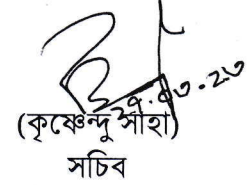 ২৭.০৩.২৩
(কৃষ্ণেন্দু সাহা)
সচিব